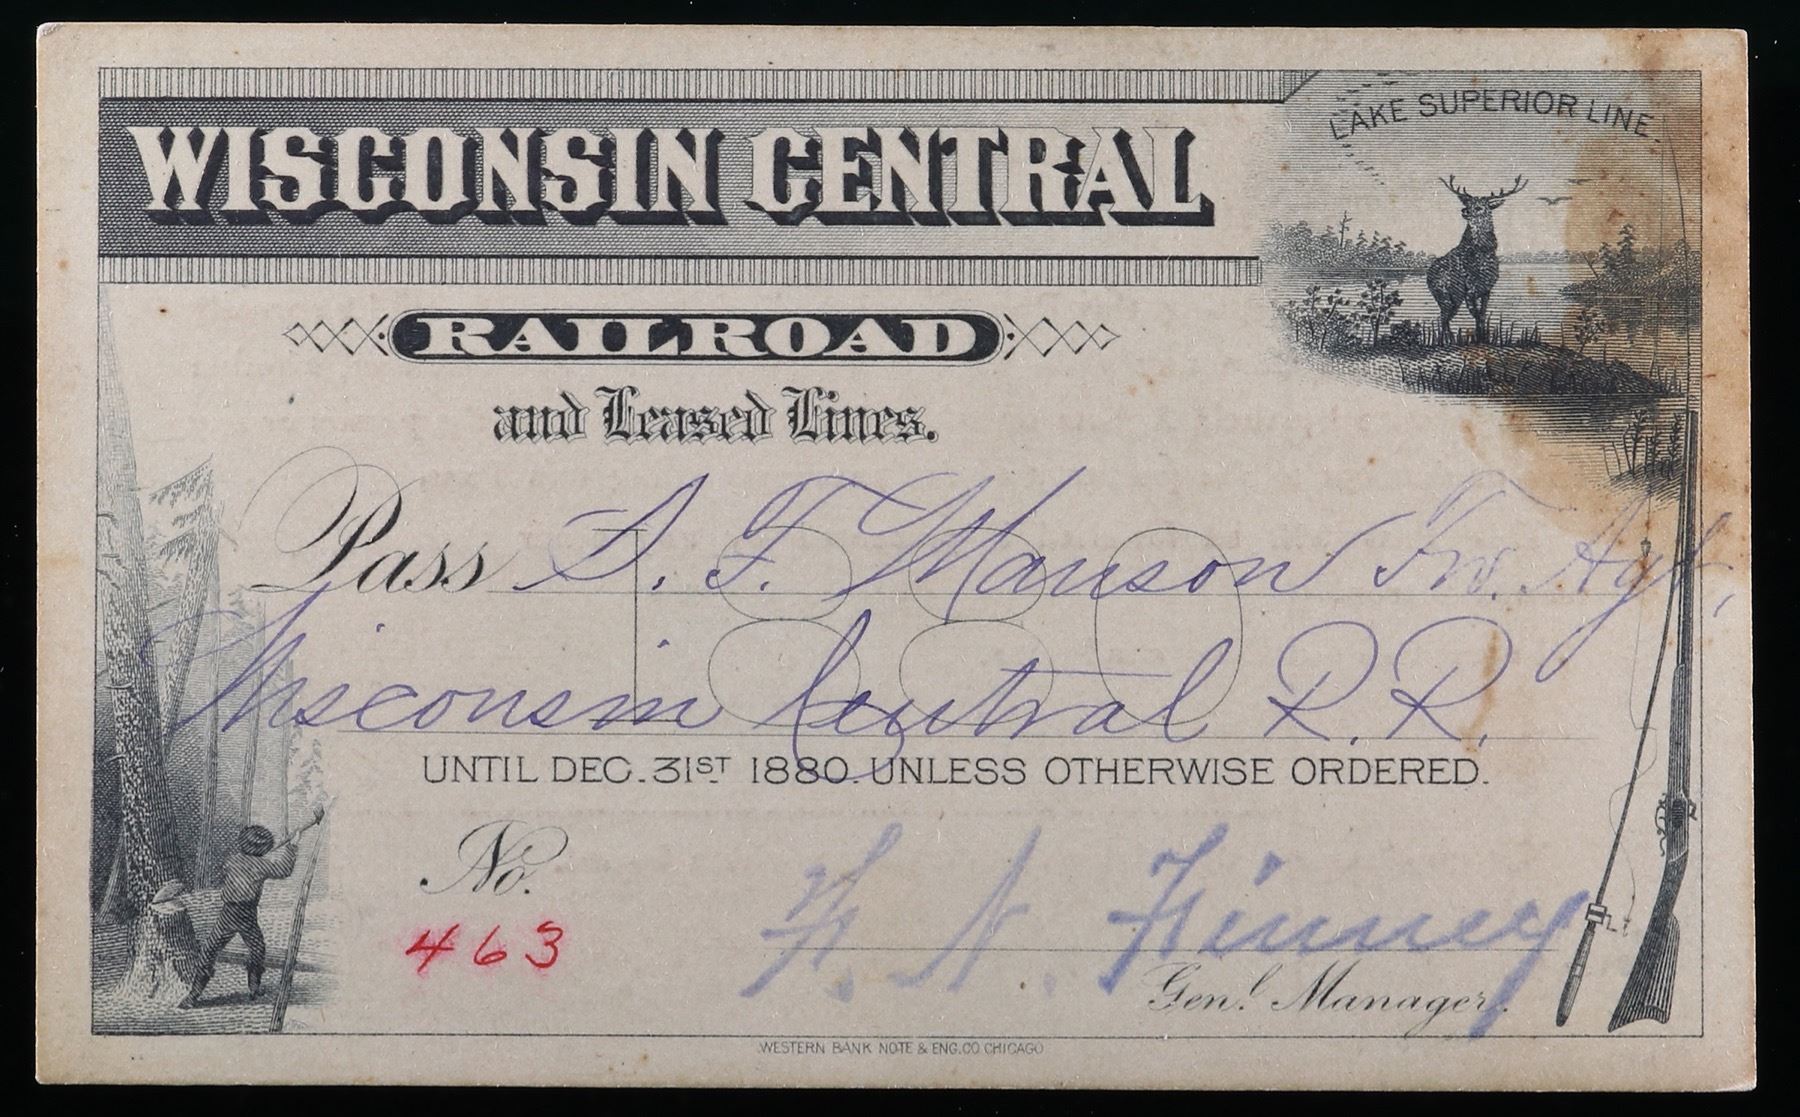 WISCONSIN CENTRAL
LAKE SUPERIOR LINE.
RAILROAD
and Leased Lines.
Pass S. F. Manson Trv. Agt,
1880
Wisconsin Central R. R.
UNTIL DEC. 31ST 1880. UNLESS OTHERWISE ORDERED.
No.
463
F. N. Finney
Genl. Manager.
WESTERN BANK NOTE & ENG. CO CHICAGO